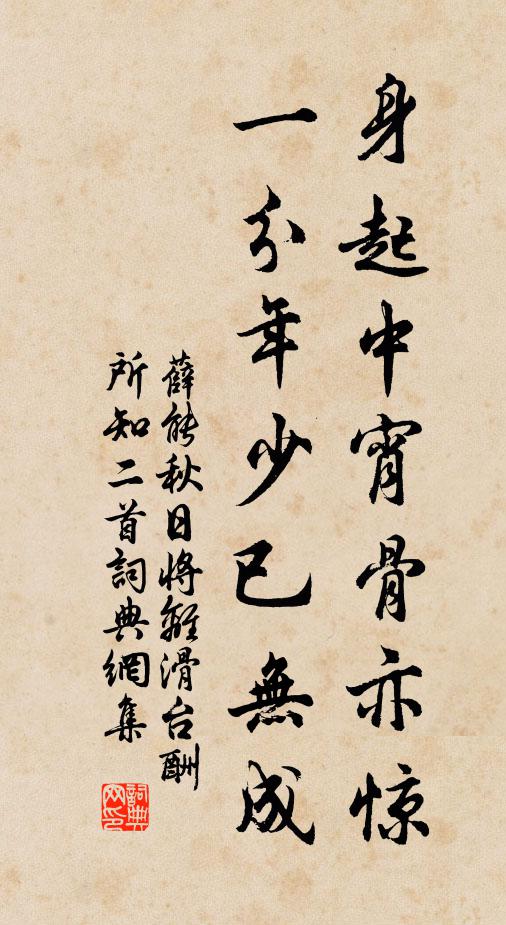 身起中宵骨亦惊
一分年少已無成
薛能秋日将離滑台酬
所知二首詞典網集
詞典网印